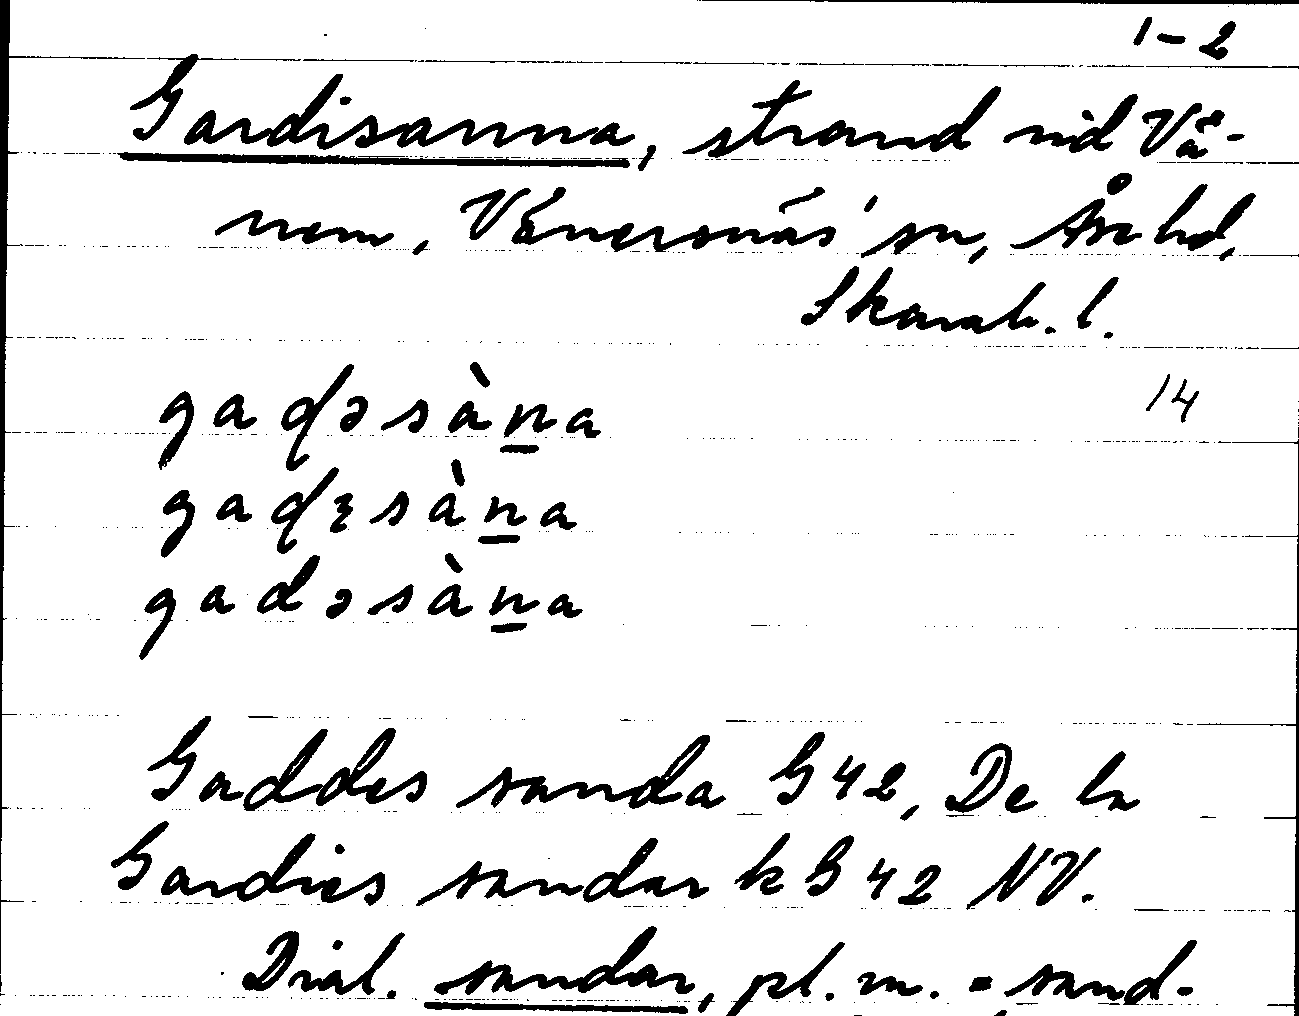 1-2
Gardisanna, strand vid Vä-
nern, Vänersnäs sn, Åse hd,
Skarab. l.
gaɖəsàn̲a 14
gaɖɛsàn̲a
gadəsàn̲a
Gaddes sanda G42, De la
Gardies sandar k G 42 NV.
Dial. sandar, pl. m. = sand-